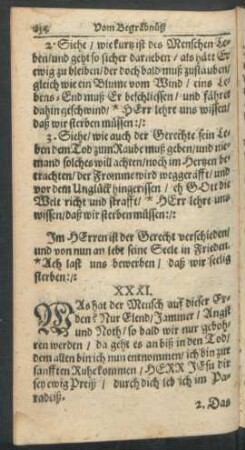 Vom Begräbnüß
2. Siehe / wie kurtz ist des Menschen Le-
ben / und geht so sicher darneben / als hätt Er
ewig zu bleiben / der doch bald muß zustäuben /
gleich wie ein Blume vom Wind / eins Le-
bens-End muß Er beschliessen / und fähret
dahin geschwind / * HErr lehre uns wissen /
daß wir sterben müssen :/:
3. Siehe / wie auch der Gerechte sein Le-
ben dem Tod zum Raube muß geben / und nie-
mand solches will achten / noch im Hertzen be-
trachten / der Fromme wird weggerafft / und
vor dem Unglück hingerissen / eh GOtt die
Welt richt und strafft / * HErr lehre uns
wissen / daß wir sterben müssen :/:
Im HErren ist der Gerecht verschieden /
und von nun an lebt seine Seele in Frieden.
* Ach last uns bewerben / daß wir seelig
sterben :/:
XXXI.
WAs hat der Mensch auf dieser Er-
den? Nur Elend / Jammer / Angst
und Noth / so bald wir nur geboh-
ren werden / da geht es an biß in den Tod /
dem allen bin ich nun entnommen / ich bin zur
sanfften Ruhe kommen / HERR JEsu dir
sey ewig Preiß / durch dich leb ich im Pa-
radeiß.
2. Das